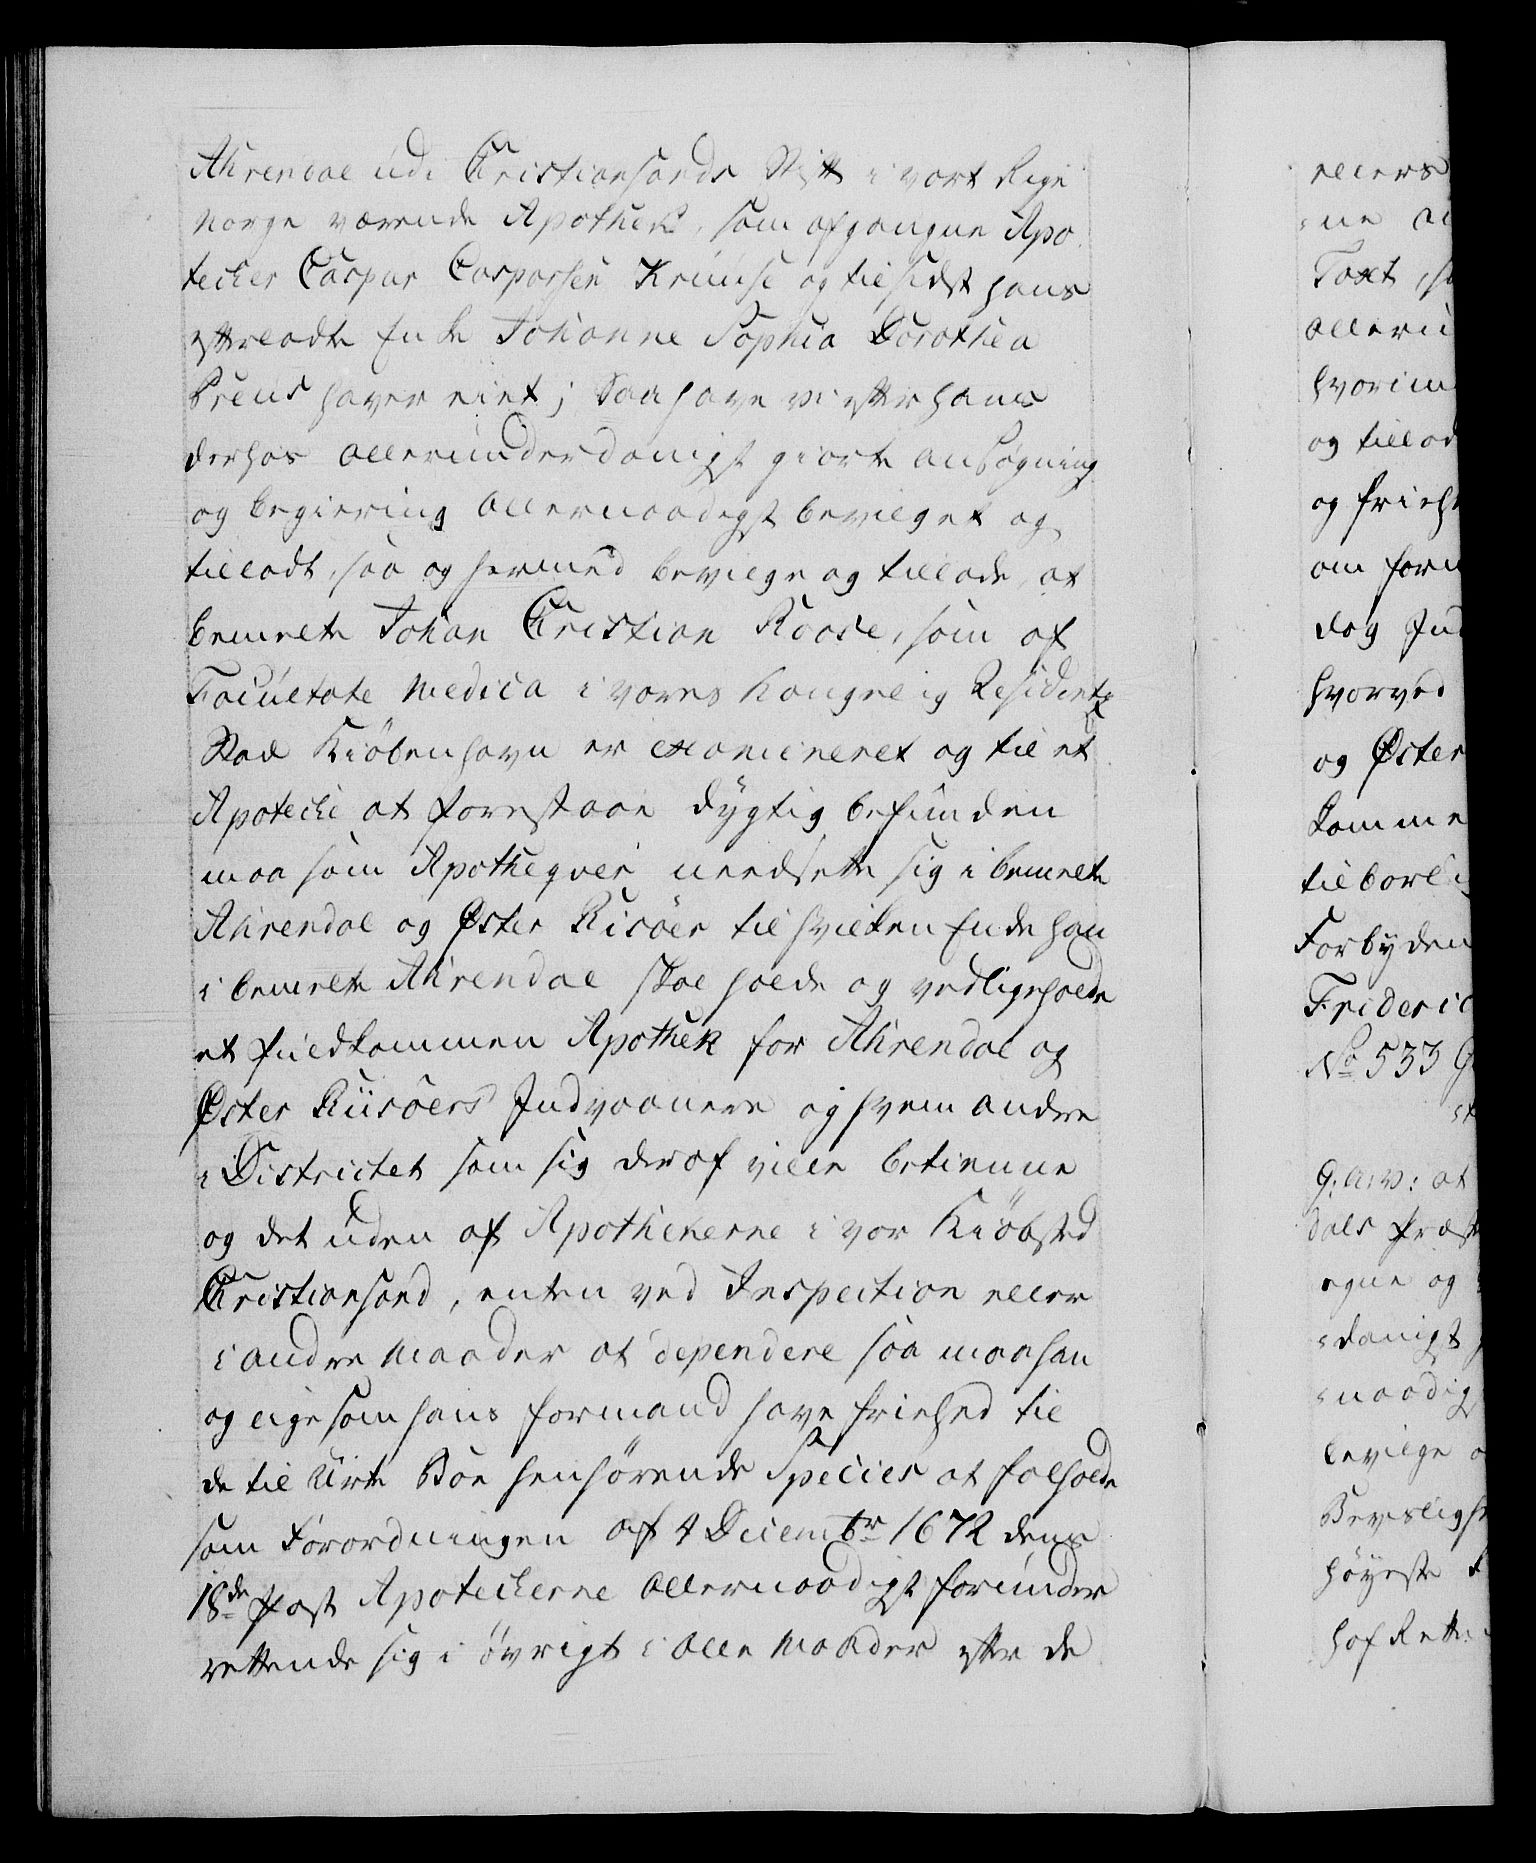 Ahrendal udi Christiansands Stift i vort Rige
Norge værende Apothek, som afgangne Apo
techer Caspar Caspersen Kruuse og tilsidst hans
efterladte Enke Johanne Sophia Dorothea
Preus haver eiet; Saa have vi efter hans
derhos allerunderdanigst giorte ansøgning
og begiering allernaadigst bevilget og
tilladt, saa og hermed bevilge og tillade, at
bemelte Johan Christian Roose, som af
Facultate Medica i vores Kongelig Residentz
Stad Kiöbenhavn er examineret og til et
Apoteche at forestaae dygtig befunden
maa som Apotheqver needsette sig i bemelte
Ahrendal og Øster Risöer til hvilken Ende han
i bemelte Ahrendal skal holde og vedligeholde
et fuldkommen Apothek for Ahrendal og
Øster Riisöers Indvaanere og hvem andre
i Districtet som sig deraf ville betienne
og det uden af Apothekerne i vor Kiöbsted
Christiansand, enten ved Inspection eller
i andre Maader at dependere saa maa han
og ligesom hans Formand have friehed til
de til Urte Boe henhørende Species at falholde
som Forordningen af 4 Decembr 1672 dens
18de Post Apotecherne allernaadigst forunder
rettende sig i övrigt i alle Maader efter de
ellers
Taxt, s
alleru
hvorim
og tillad
og frieh
om form
dog Ind
hvorved
og Øster
komme
tilbørli
Forbyden
Frideric
No 533 G
G: A: V: at
dals Præst
egne og
danigst
naadig
bevilge o
Bevislighe
höyeste
Hof Rett